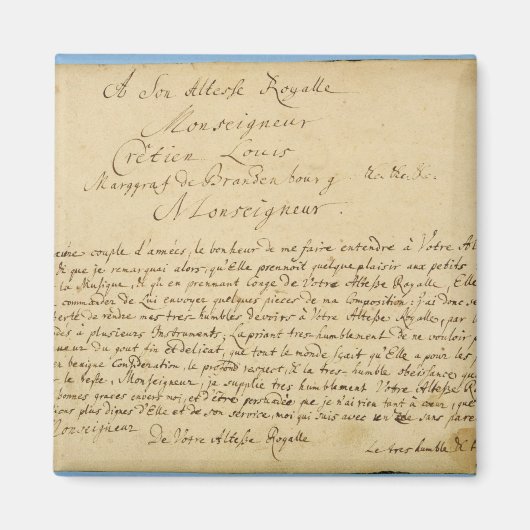 A Son Altesse Royalle
Monseigneur
Crêtien Louis
Marggraf de Brandenbourg &c. &c. &c.
Monseigneur.
couple d'années, le bonheur de me faire entendre à Votre Al
que je remarquai alors, qu'Elle prennoit quelque plaisir aux petits
la Musique, & qu'en prennant Conge de Votre Altesse Royalle, Elle
commander de Lui envoyer quelques pieces de ma Composition: j'ai donc se
berté de rendre mes tres-humbles devoirs à Votre Altesse Royalle, par l
dés à plusieurs Instruments; La priant tres-humblement de ne vouloir p
ueur du gout fin et delicat, que tout le monde sçait qu'Elle a pour les
en benigne Consideration, le profond respect, & la tres-humble obeissance que
le reste, Monseigneur, je supplie tres humblement Votre Altesse R
bonnes graces envers moi, et d'être persuadèe que je n'ai rien tant à cœur, que
ions plus dignes d'Elle et de son service, moi qui suis avec un zele sans pare
Monseigneur
De Votre Altesse Royalle
Le tres humble &